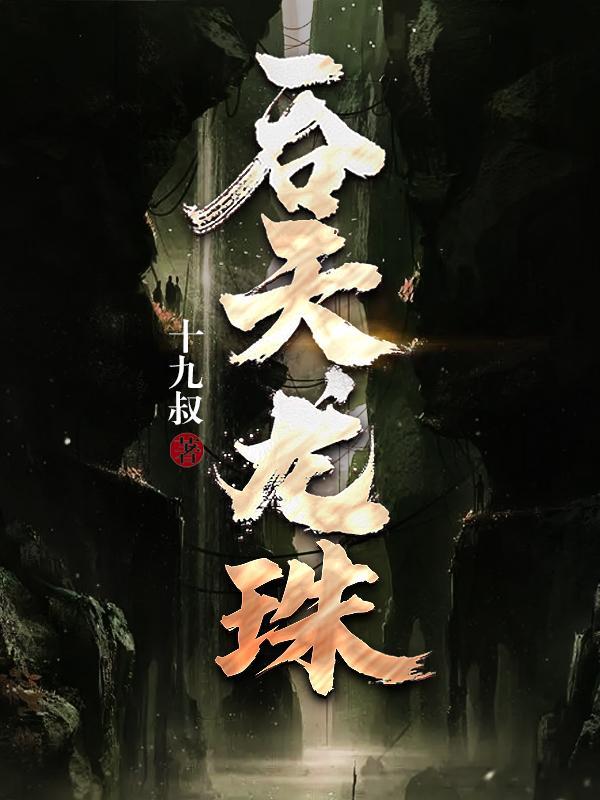 吞天龙珠
十九叔 著